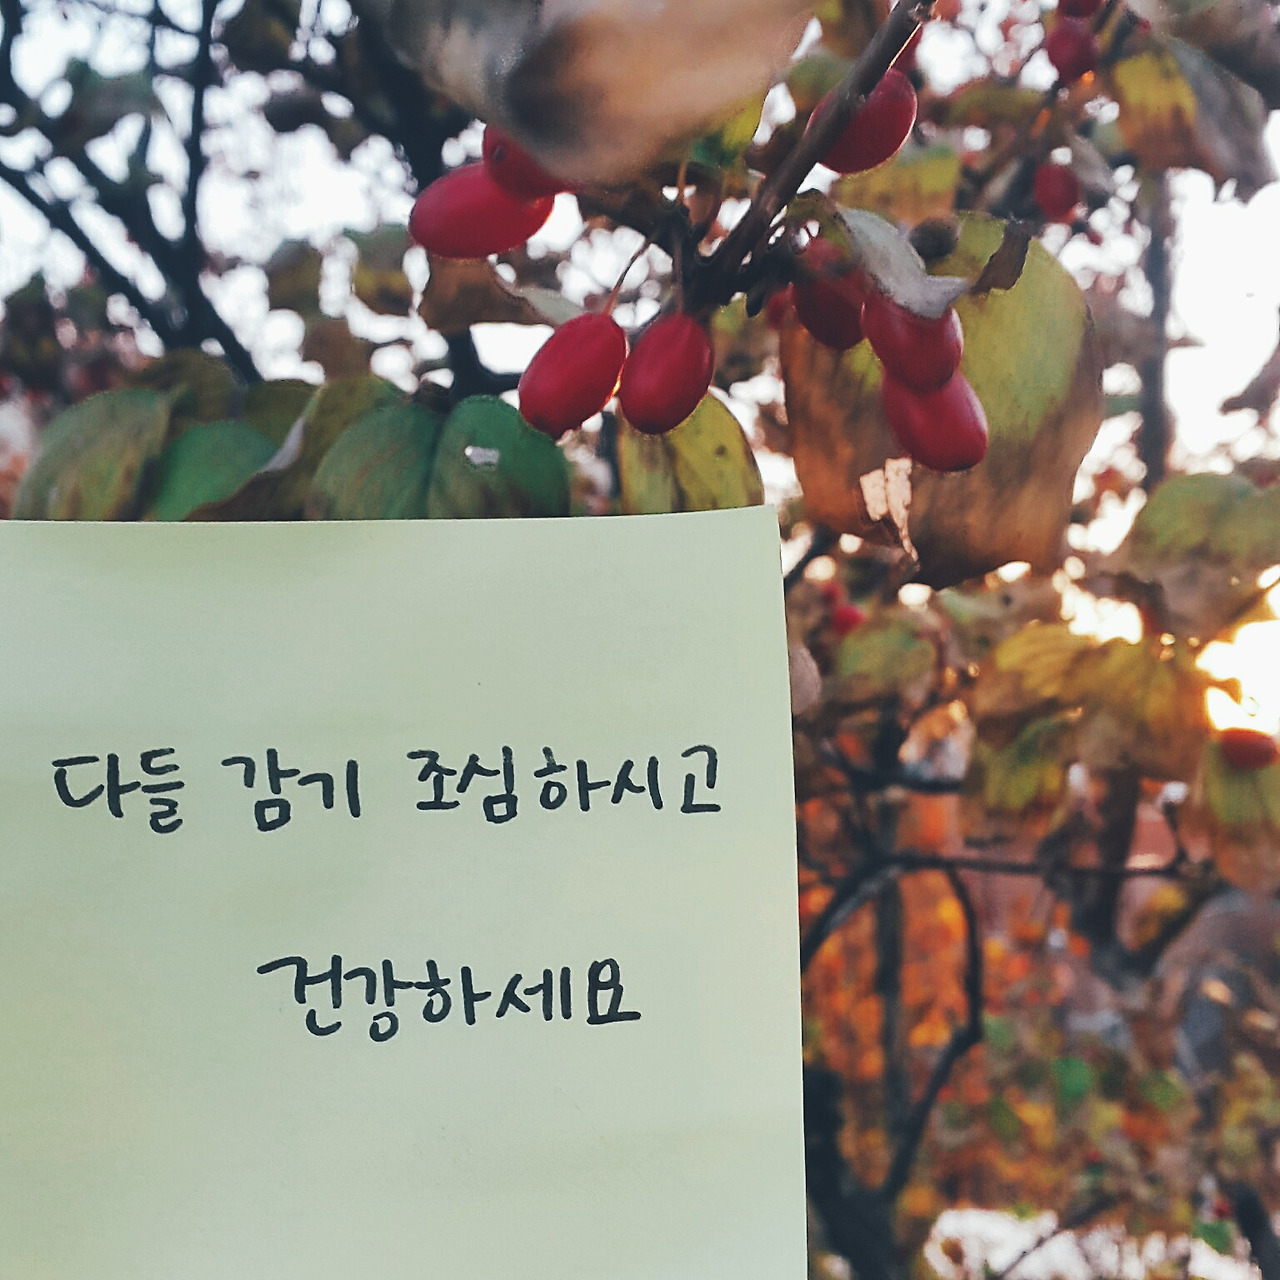 다들 감기 조심하시고
건강하세요